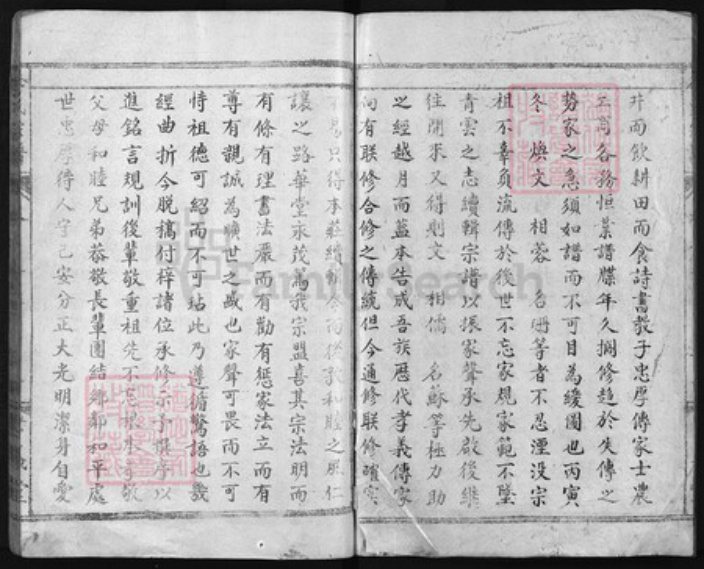 井而飲耕田而食詩書教子忠厚傳家士農
工商各務恒業譜牒年久擱修趨於失傳之
勢家之急須如譜而不可目為緩圖也丙寅
冬 煥文 相蓉 名珊等者不忍湮没宗
祖不辜負流傳於後世不忘家規家範不墜
青雲之志續輯宗譜以振家聲承先啟後繼
往開來又得則文 相儒 名蘇等極力助
之經越月而蓋本告成吾族歷代孝義傳家
向有聯修合修之傳統但今通修聯修
只得本莊續 從 和睦之 仁
讓之路華堂永茂篤我宗盟喜其宗法明而
有條有理書法嚴而有勸有惩家法立而有
尊有親誠為曠世之盛也家聲可畏而不可
恃祖德可紹而不可玷此乃遵循驚語也幾
經曲折今脱稿付梓諸位承修 予撰序以
進銘言規訓後輩敬重祖先不忘根本 敬
父母和睦兄弟恭敬長輩團結鄉鄰和平處
世忠厚待人守己安分正大光明潔身自愛
FamilySearch